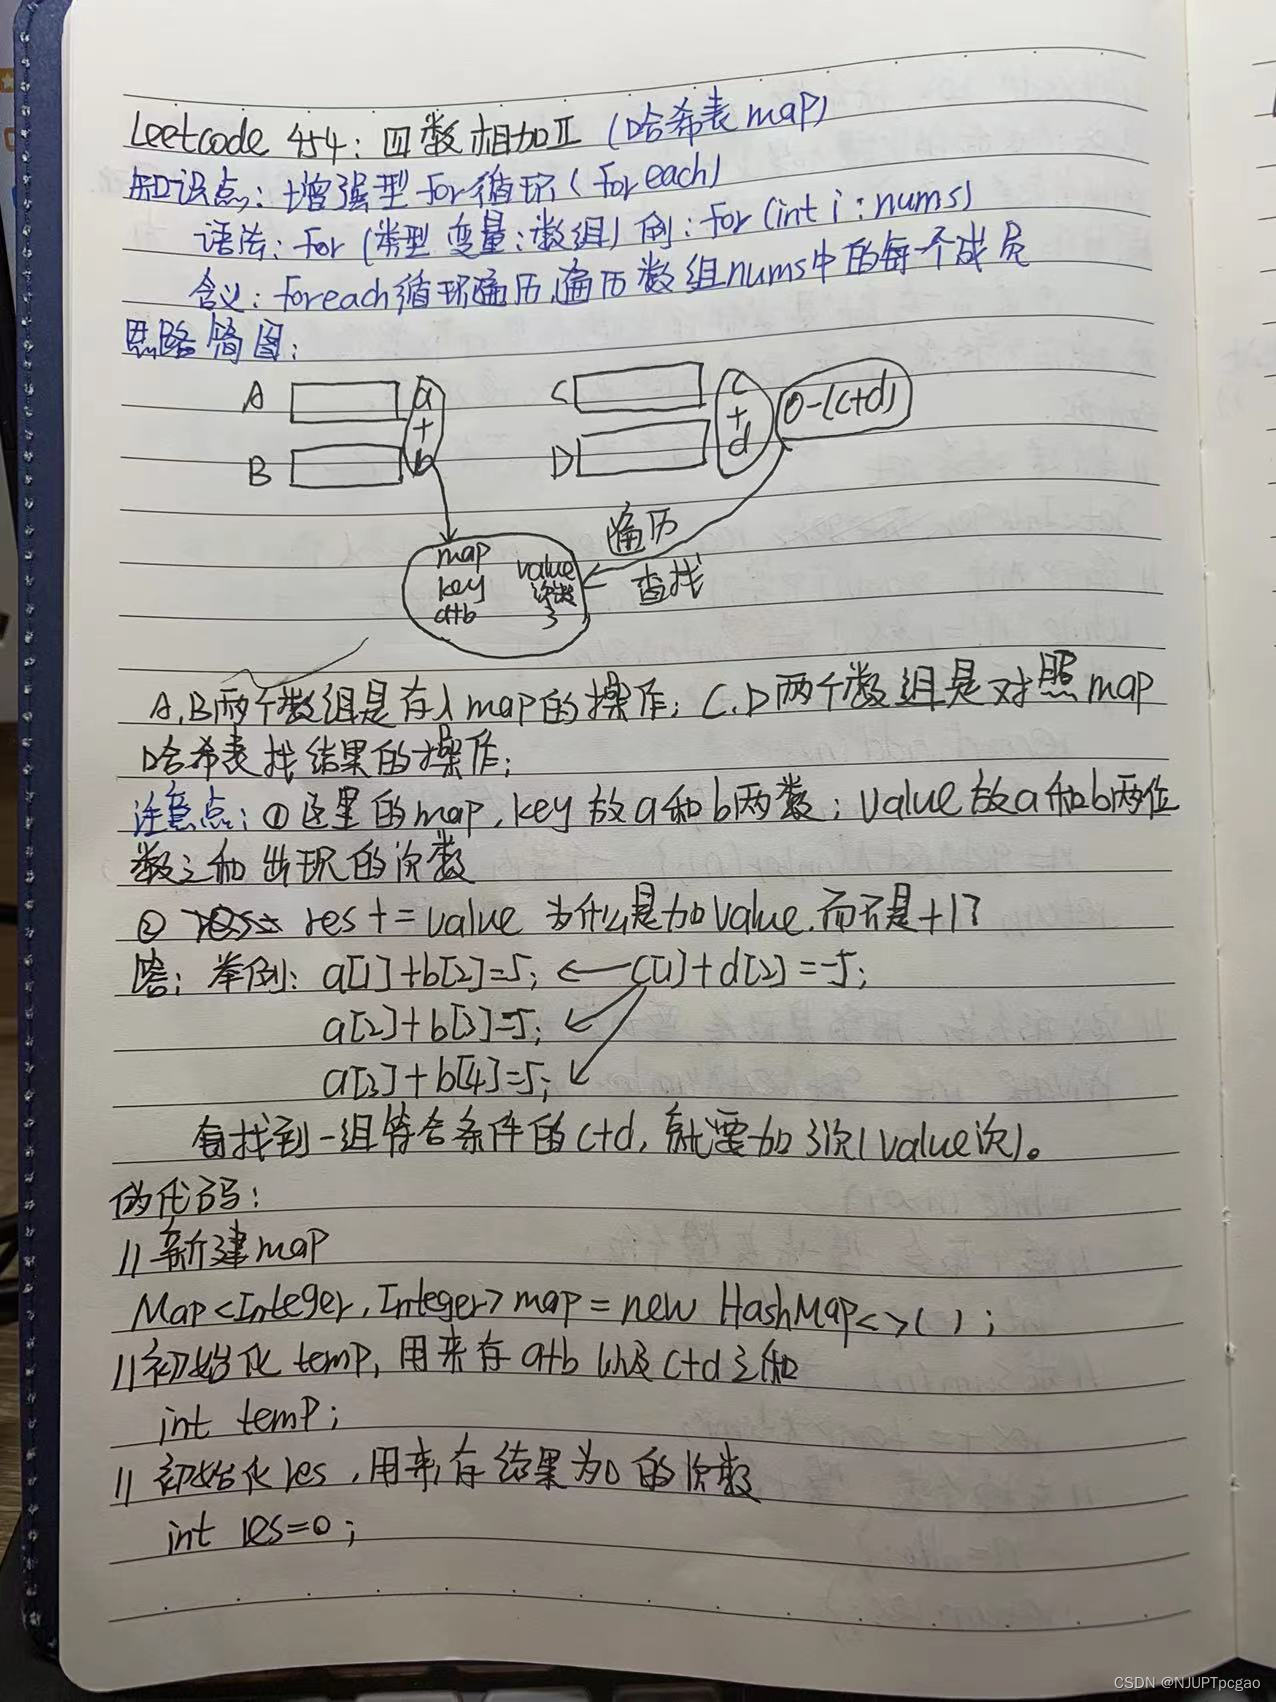 Leetcode 454：四数相加Ⅱ（哈希表map）
知识点：增强型for循环（foreach）
语法：for（类型 变量：数组）例：for（int i：nums）
含义：foreach循环遍历，遍历数组nums中的每个成员
思路简图：
A a C c 0-(c+d)
+ +
B b D d
遍历
map value
key 次数 查找
a+b 3
A，B两个数组是存入map的操作；C，D两个数组是对照map
哈希表找结果的操作；
注意点：①这里的map，key放a和b两数；value放a和b两位
数之和出现的次数
② res += value 为什么是加value，而不是+1？
答：举例：a[1]+b[2]=5；← c[1]+d[2]=-5；
a[2]+b[3]=5；
a[3]+b[4]=5；
有找到一组符合条件的c+d，就要加3次（value次）。
伪代码：
//新建map
Map<Integer，Integer> map = new HashMap<>()；
//初始化temp，用来存a+b以及c+d之和
int temp；
//初始化res，用来存结果为0的次数
int res=0；
CSDN @NJUPTpcgao